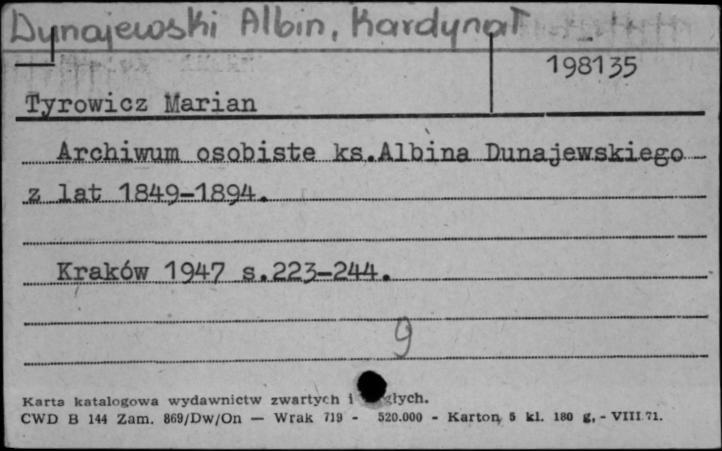 Dynajewski Albin, Kardynał
198135
Tyrowicz Marian
Archiwum osobiste ks.Albina Dunajewskiego
z lat 1849-1894.
Kraków 1947 s.223-244.
9
Karta katalogowa wydawnictw zwartych i
CWD B 144 Zam. 869/Dw/On — Wrak 719 - 520.000 - Karton 5 kl. 180 g. - VIII 71.